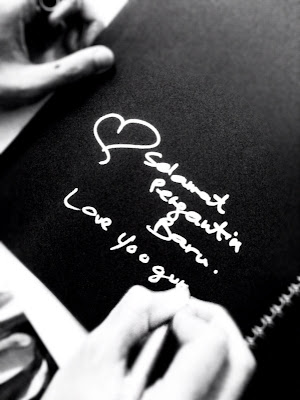 Selamat
Pengantin
Baru.
Love You guy